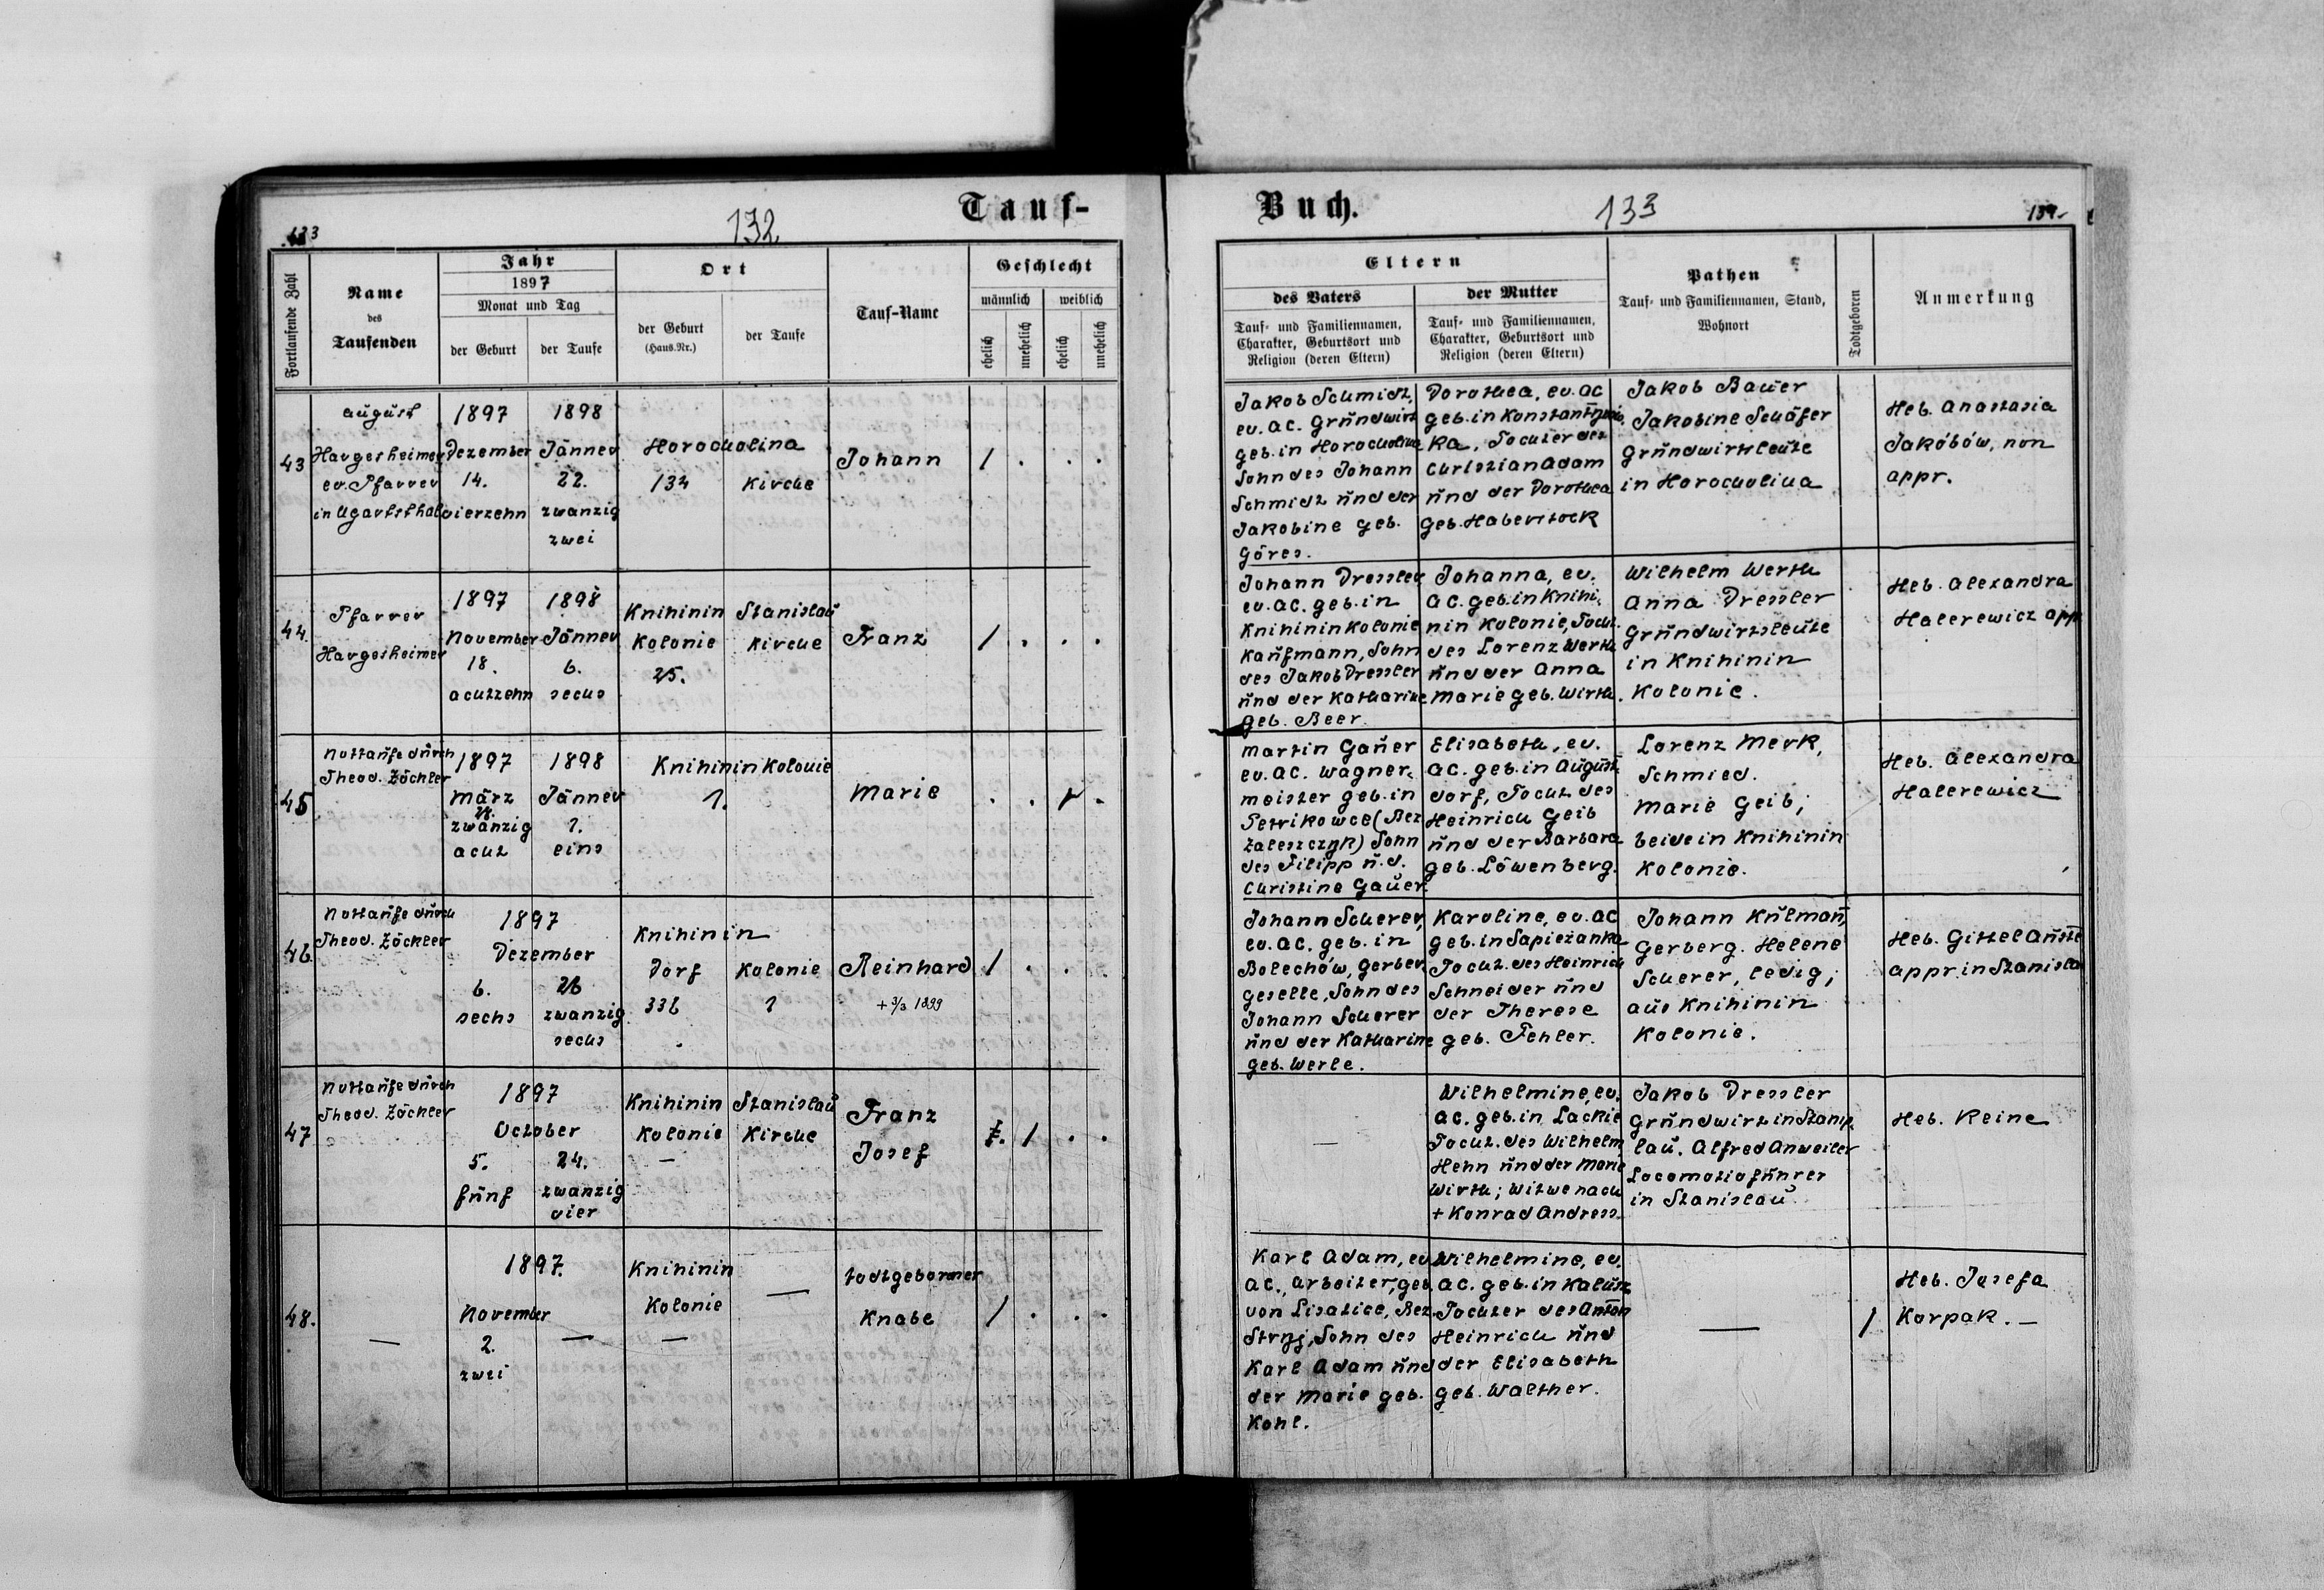 Tauf-
132
133
Fortlaufende Zahl
Name
des
Taufenden
Jahr
1897
Monat und Tag
der Geburt
der Taufe
Ort
der Geburt
(Haus-Nr.)
der Taufe
Tauf-Name
Geschlecht
männlich
weiblich
ehelich
unehelich
ehelich
unehelich
43
August
Hargesheimer
ev. Pfarrer
in Ugartsthal
1897
Dezember
14.
vierzehn
1898
Jänner
22.
zwanzig
zwei
Horocholina
134
Kirche
Johann
/ . . .
44.
Pfarrer
Hargesheimer
1897
November
18.
achtzehn
1898
Jänner
6.
sechs
Knihinin
Kolonie
25.
Stanislau
Kirche
Franz
/ . . .
45
Nottaufe durch
Theod. Zöckler
1897
März
28.
zwanzig
acht
1898
Jänner
1.
eins
Knihinin Kolonie
1.
Marie
. . / .
46
Nottaufe durch
Theod. Zöckler
1897
Dezember
6.
sechs
26
zwanzig
sechs
Knihinin
Dorf
336
Kolonie
1
Reinhard
+ 3/3 1899
/ . . .
47
Nottaufe durch
Theod. Zöckler
1897
October
5.
fünf
24.
zwanzig
vier
Knihinin
Kolonie
—
Stanislau
Kirche
Franz
Josef
/ . .
48.
—
1897.
November
2.
zwei
—
Knihinin
Kolonie
—
—
todtgeborner
Knabe
/ . . .
Buch.
133
134
Eltern
des Vaters
Tauf- und Familiennamen,
Charakter, Geburtsort und
Religion (deren Eltern)
der Mutter
Tauf- und Familiennamen,
Charakter, Geburtsort und
Religion (deren Eltern)
Pathen
Tauf- und Familiennamen, Stand,
Wohnort
Todtgeboren
Anmerkung
Jakob Schmidt,
ev. AC. Grundwirt
geb. in Horocholina
Sohn des Johann
Schmidt und der
Jakobine geb.
Göres.
Dorothea, ev. AC
geb. in Konstantinow
ka, Tochter des
Christian Adam
und der Dorothea
geb. Haberstock
Jakob Bauer
Jakobine Schäfer
Grundwirtsleute
in Horocholina
Heb. Anastasia
Jakóbów, non
appr.
Johann Dressler
ev. AC. geb. in
Knihinin Kolonie
Kaufmann, Sohn
des Jakob Dressler
und der Katharine
geb. Beer.
Johanna, ev.
AC. geb. in Knihi-
nin Kolonie, Tocht.
des Lorenz Werth
und der Anna
Marie geb. Wirth.
Wilhelm Werth
Anna Dressler
Grundwirtsleute
in Knihinin
Kolonie.
Heb. Alexandra
Halerewicz app
Martin Gauer
ev. AC. Wagner-
meister geb. in
Petrikowce (Bez
Zaleszczyk) Sohn
des Filipp u. d.
Christine Gauer.
Elisabeth, ev.
AC. geb. in August-
dorf, Tocht. des
Heinrich Geib
und der Barbara
geb. Löwenberg.
Lorenz Merk,
Schmied.
Marie Geib;
beide in Knihinin
Kolonie.
Heb. Alexandra
Halerewicz
Johann Scherer,
ev. AC. geb. in
Bolechów, Gerber-
geselle, Sohn des
Johann Scherer
und der Katharine
geb. Werle.
Karoline, ev. AC
geb. in Sapiezanka
Tocht. des Heinrich
Schneider und
der Therese
geb. Fehler.
Johann Kulmañ,
Gerberg. Helene
Scherer, ledig;
aus Knihinin
Kolonie.
Heb. Gittel
appr. in Stanislau
—
Wilhelmine, ev.
AC. geb. in Lackie
Tocht. des Wilhelm
Hehn und der Marie
Wirth; Witwe nach
+ Konrad Andress.
Jakob Dressler
Grundwirt in Stanis-
lau. Alfred Anweiler
Locomotivführer
in Stanislau.
Heb. Keine
Karl Adam, ev.
AC., Arbeiter, geb.
von Lisatice, Bez.
Stryj, Sohn des
Karl Adam und
der Marie geb.
Kohl.
Wilhelmine, ev.
AC. geb. in Kalusz
Tochter des Anton
Heinrich und
der Elisabeth
geb. Walther.
—
/
Heb. Josefa
Karpak. —